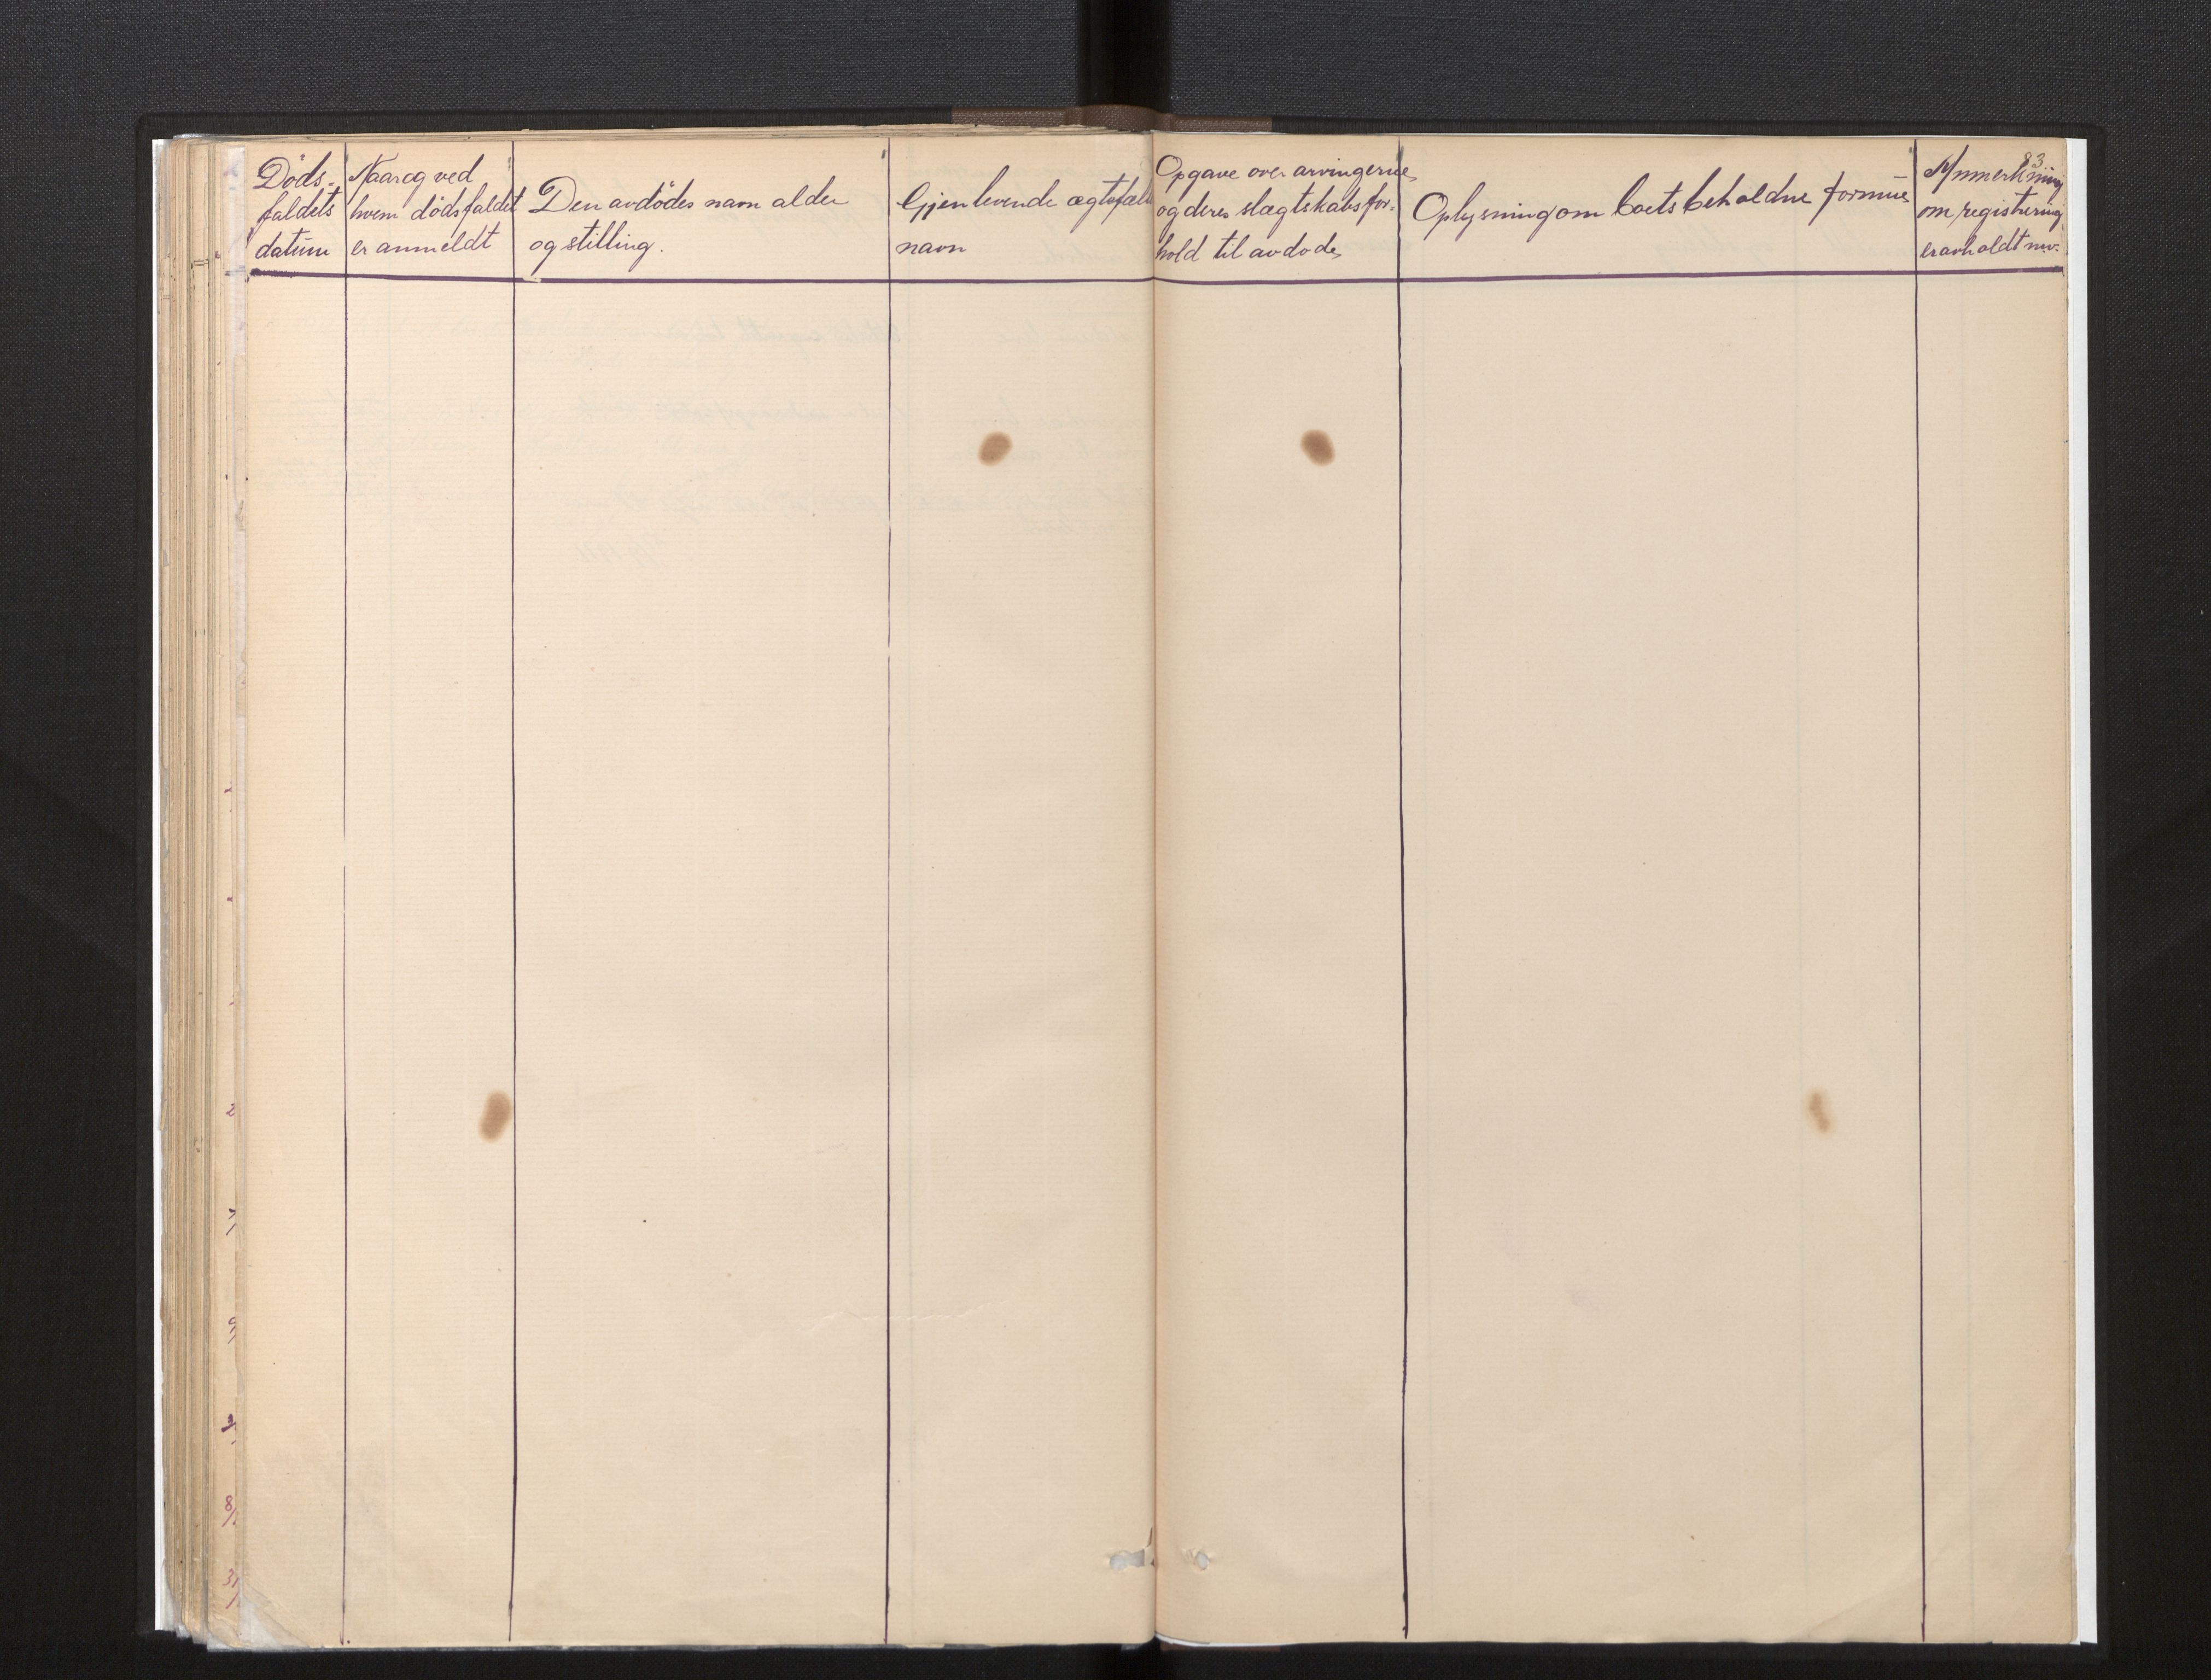 83
Döds-
faldets
datum
Naar og ved
hvem dödsfaldet
er anmeldt
Den avdödes navn alder
og stilling.
Gjenlevende ægtefæll
navn
Opgave over arvingerne
og deres slægtskabsfor-
hold til avdöde
Oplysning om boets beholdne formue
Anmerkning
om registrering
er avholdt mv.